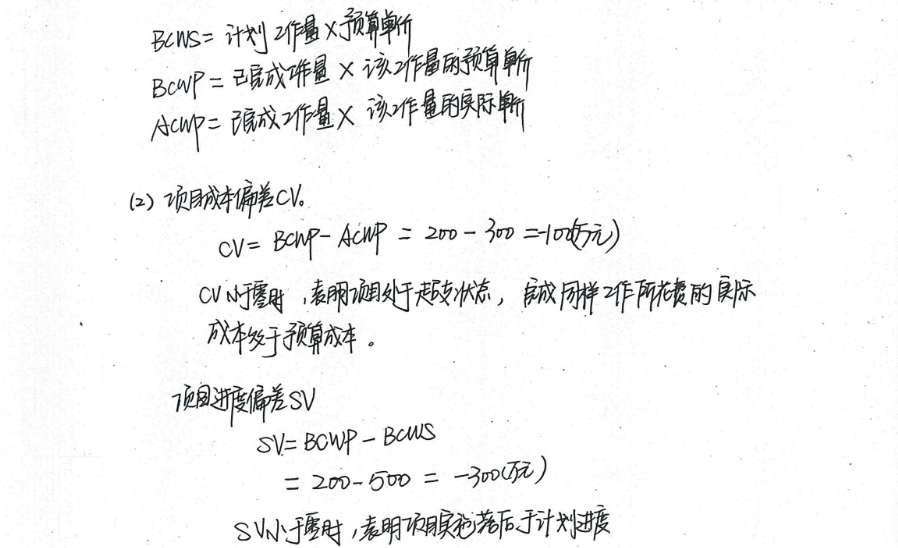 BCWS = 计划工作量×预算单价
BCWP = 已完成工作量 × 该工作量的预算单价
ACWP = 已完成工作量 × 该工作量的实际单价
(2) 项目成本偏差CV。
CV = BCWP - ACWP = 200 - 300 = -100(万元)
CV小于零时,表明项目处于超支状态,完成同样工作所花费的实际
成本多于预算成本。
项目进度偏差SV
SV = BCWP - BCWS
= 200 - 500 = -300(万元)
SV小于零时,表明项目实施落后于计划进度